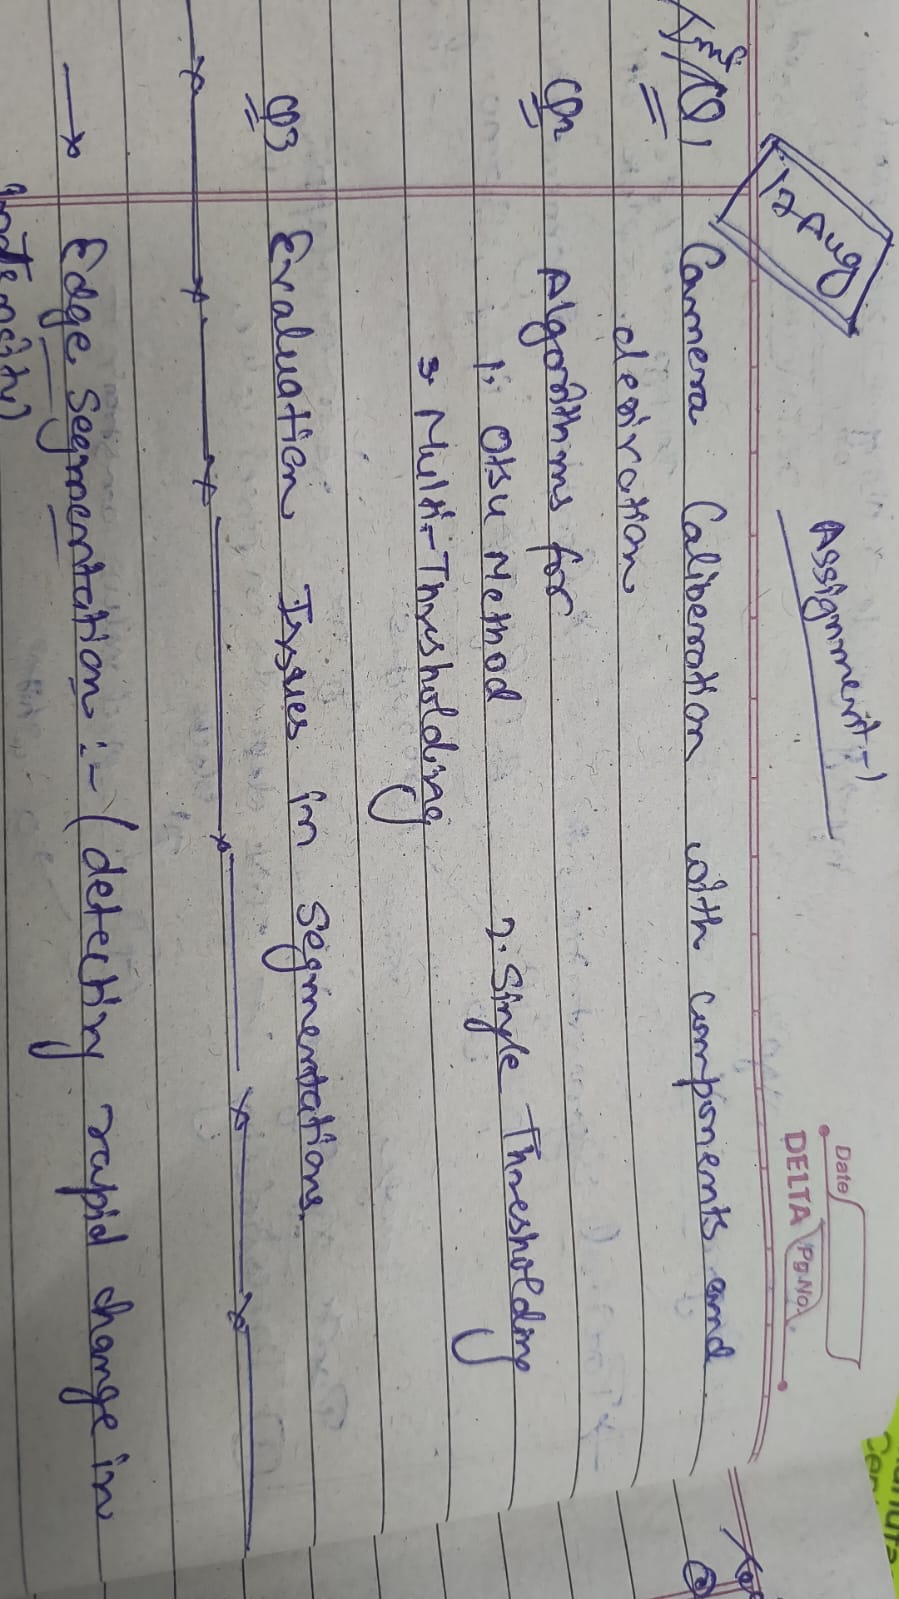 12 Aug
Assignment-1
Date
DELTA Pg.No.
Imp Q1 Camera Caliberation with components and
derivation
Q2 Algorithms for
1. Otsu Method 2. Single Thresholding
3. Multi-Thresholding
Q3 Evaluation Issues in Segmentations.
→ Edge Segmentation :- (detecting rapid change in
intencity)